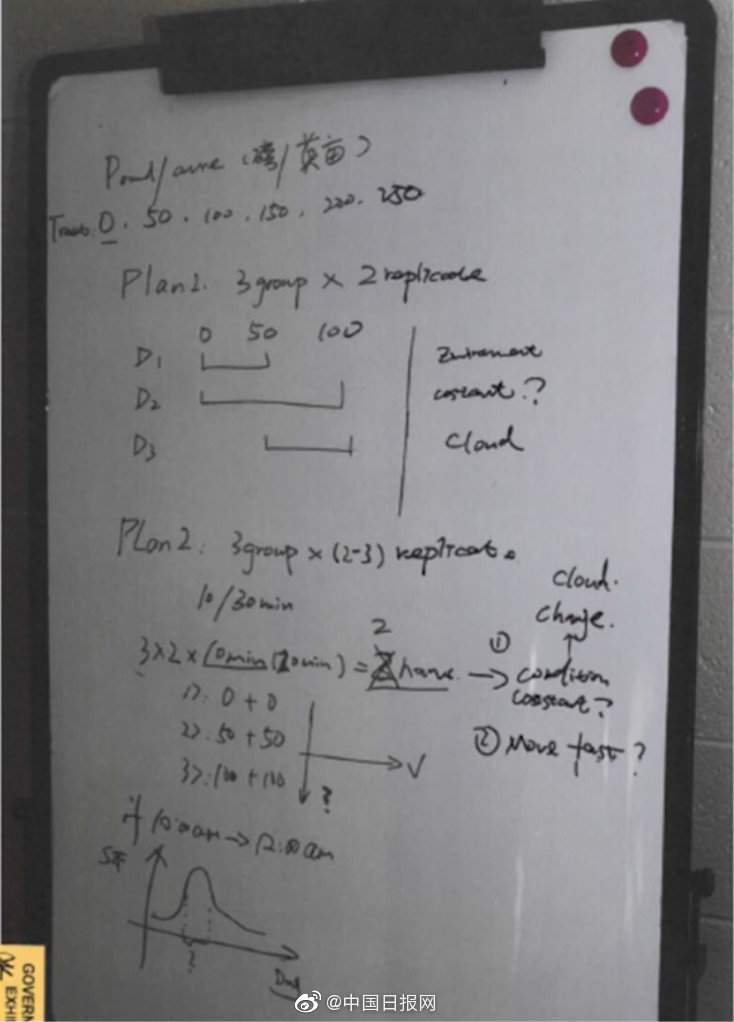 Pound/acre (磅/英亩)
Treat: 0, 50, 100, 150, 200, 250
Plan1: 3 group × 2 replicate
0 50 100
D1
D2
D3
constant?
Cloud
Plan2: 3 group × (2-3) replicate
10/30min
Cloud.
change.
2
3×2×(10min/20min) = 2 hour → ① condition
constant?
1>: 0 + 0
2>: 50 + 50 → √
3>: 100 + 100 ?
② Move fast?
if 10:00am → 12:00am
SIF
?
Day
GOVERN
EXHI
@中国日报网